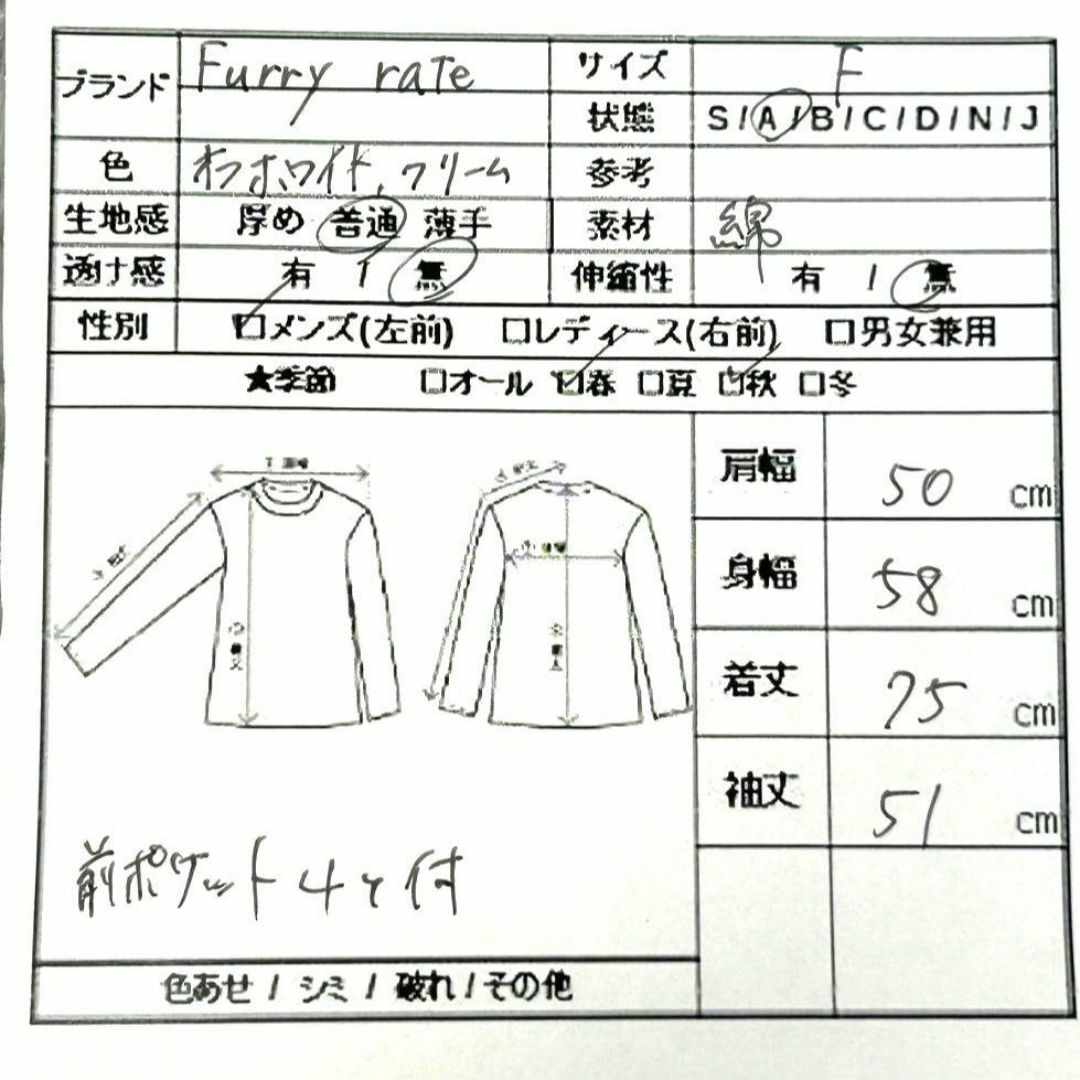 ブランド Furry rate サイズ F
状態 S/A/B/C/D/N/J
色 オフホワイト、クリーム 参考
生地感 厚め 普通 薄手 素材 綿
透け感 有 / 無 伸縮性 有 / 無
性別 □メンズ(左前) □レディース(右前) □男女兼用
★季節 □オール □春 □夏 □秋 □冬
肩幅 50 cm
身幅 58 cm
着丈 75 cm
袖丈 51 cm
前ポケット4つ付
色あせ / シミ / 破れ / その他